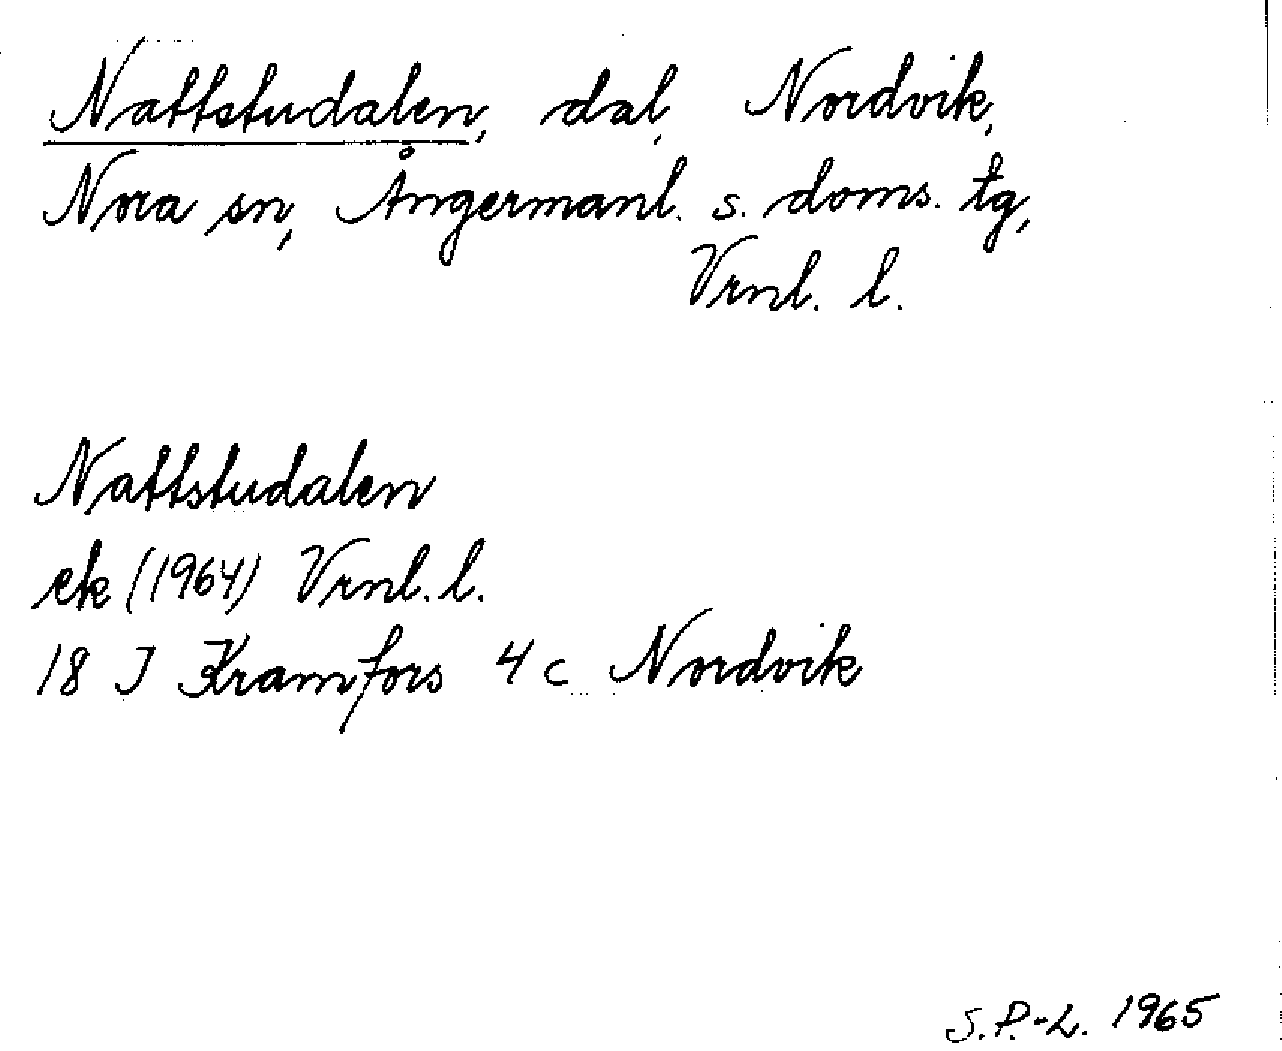 Nattstudalen, dal, Nordvik,
Nora sn, Ångermanl. s. doms. tg,
Vrnl. l.
Nattstudalen
ek (1964) Vrnl. l.
18 J Kramfors 4 c Nordvik
S.P.-L. 1965